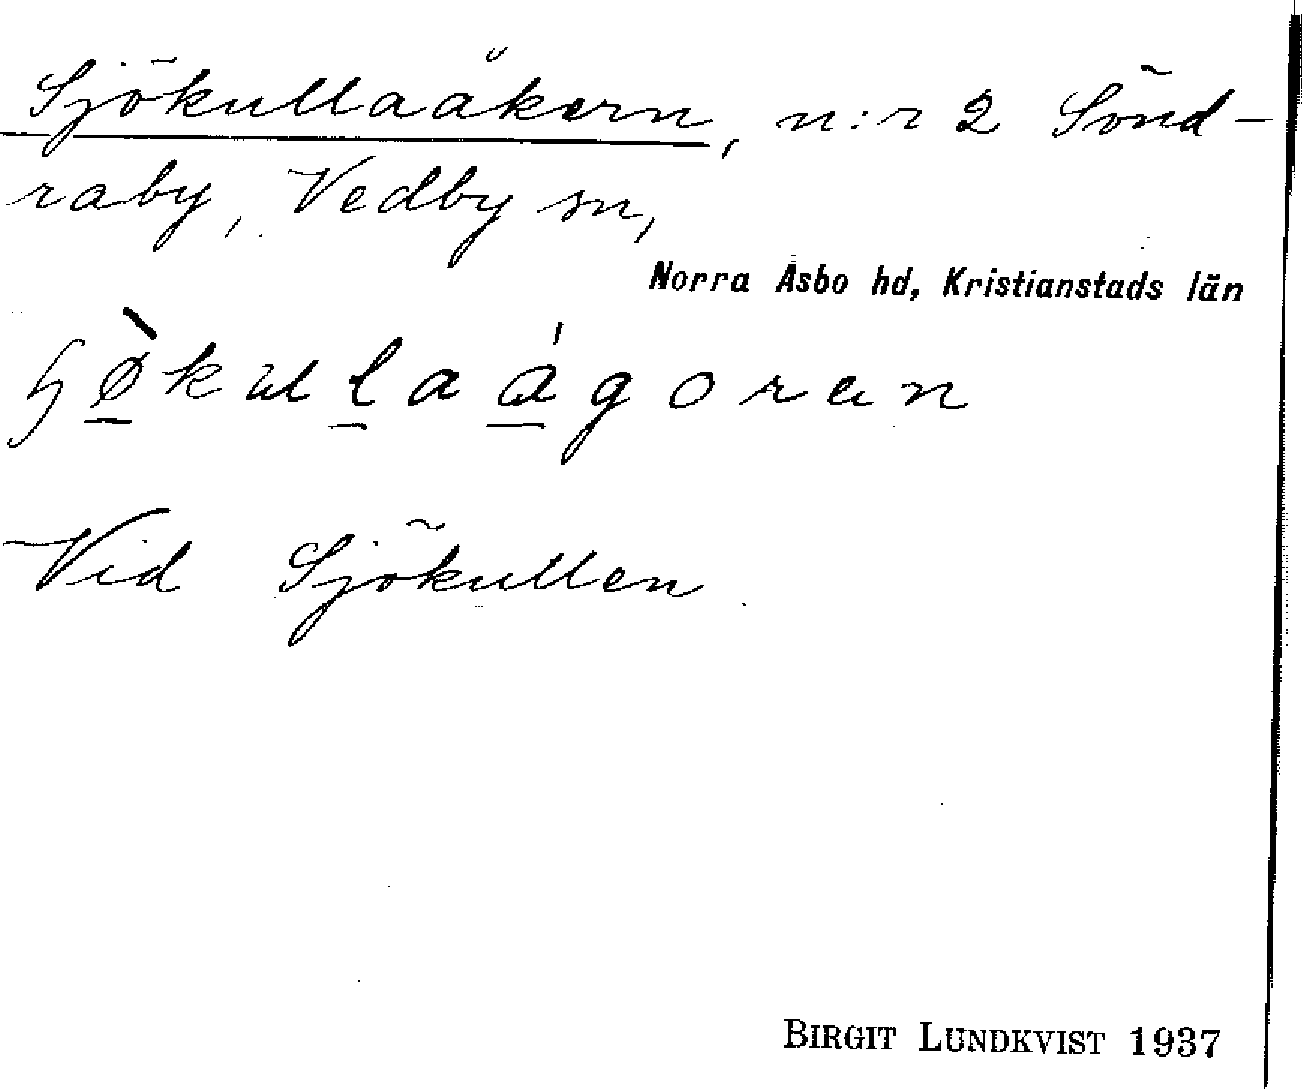 Sjökullaåkern, n:r 2 Sönd-
raby, Vedby sn,
Norra Åsbo hd, Kristianstads län
Vid Sjökullen
BIRGIT LUNDKVIST 1937